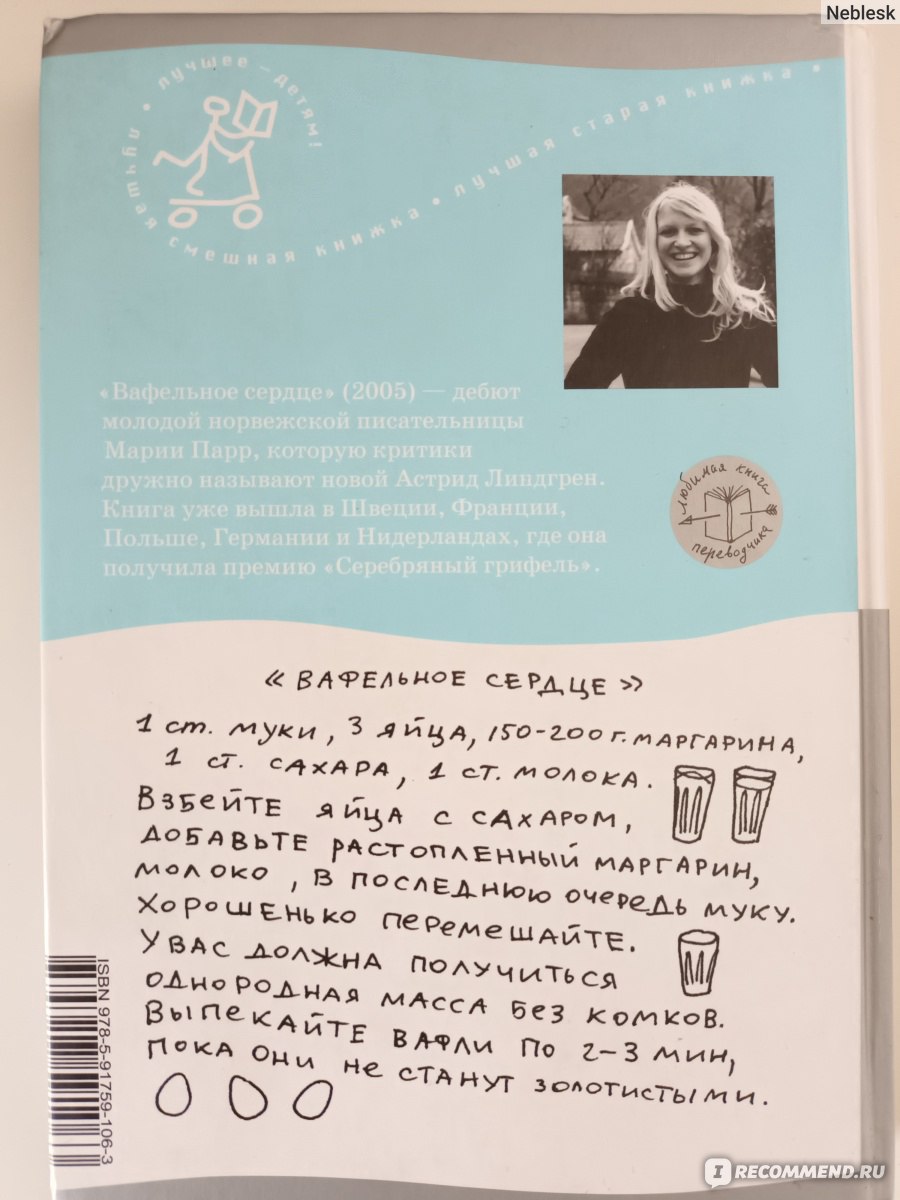 Neblesk
• лучшее — детям! •
лучшая смешная книжка • лучшая старая книжка •
«Вафельное сердце» (2005) — дебют
молодой норвежской писательницы
Марии Парр, которую критики
дружно называют новой Астрид Линдгрен.
Книга уже вышла в Швеции, Франции,
Польше, Германии и Нидерландах, где она
получила премию «Серебряный грифель».
любимая книга
переводчика
« ВАФЕЛЬНОЕ СЕРДЦЕ »
1 ст. муки, 3 яйца, 150-200 г. маргарина,
1 ст. сахара, 1 ст. молока.
Взбейте яйца с сахаром,
добавьте растопленный маргарин,
молоко, в последнюю очередь муку.
Хорошенько перемешайте.
У вас должна получиться
однородная масса без комков.
Выпекайте вафли по 2-3 мин,
пока они не станут золотистыми.
ISBN 978-5-91759-106-3
IRECOMMEND.RU